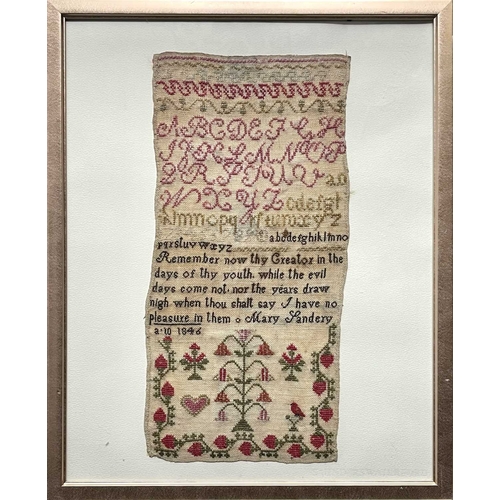 ABCDEFGH
IJKLMNOP
QRSTUV
WXYZ cdefgh
klmnopq
abcdefghiklmno
pqrsluvwxyz
Remember now thy Creator in the
days of thy youth. while the evil
days come not, nor the years draw
nigh when thou shalt say I have no
pleasure in them o Mary Sandery
a·10 1846